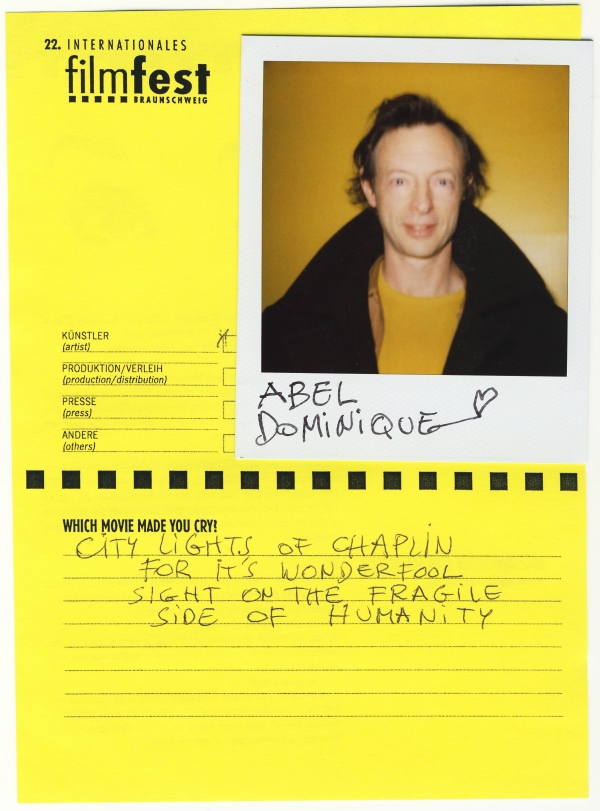 22. INTERNATIONALES
filmfest
BRAUNSCHWEIG
KÜNSTLER
(artist)
PRODUKTION/VERLEIH
(production/distribution)
PRESSE
(press)
ANDERE
(others)
ABEL
DOMINIQUE
WHICH MOVIE MADE YOU CRY?
CITY LIGHTS OF CHAPLIN
FOR IT'S WONDERFOOL
SIGHT ON THE FRAGILE
SIDE OF HUMANITY